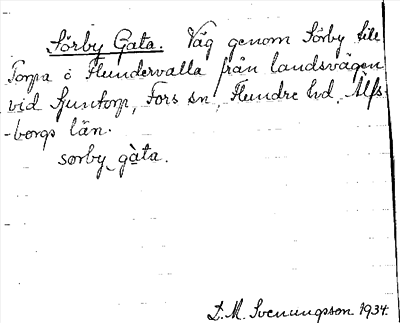 Sörby Gata. Väg genom Sörby till
Torpa o Flendervalla från landsvägen
vid Sjuntorp, Fors sn, Flundre hd, Älfs
-borgs län.
sörby gàta.
D. M. Svenungsson 1934.